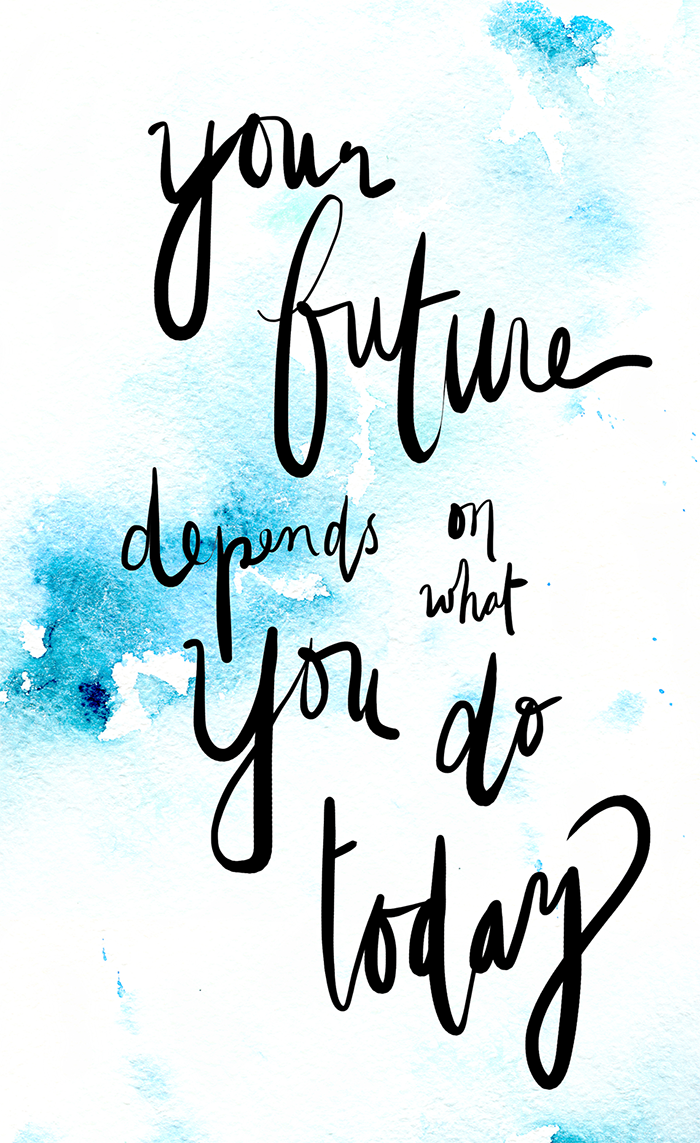 your
future
depends on
what
you do
today